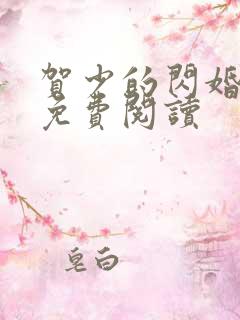 賀少的閃婚
免費閱讀
皂白